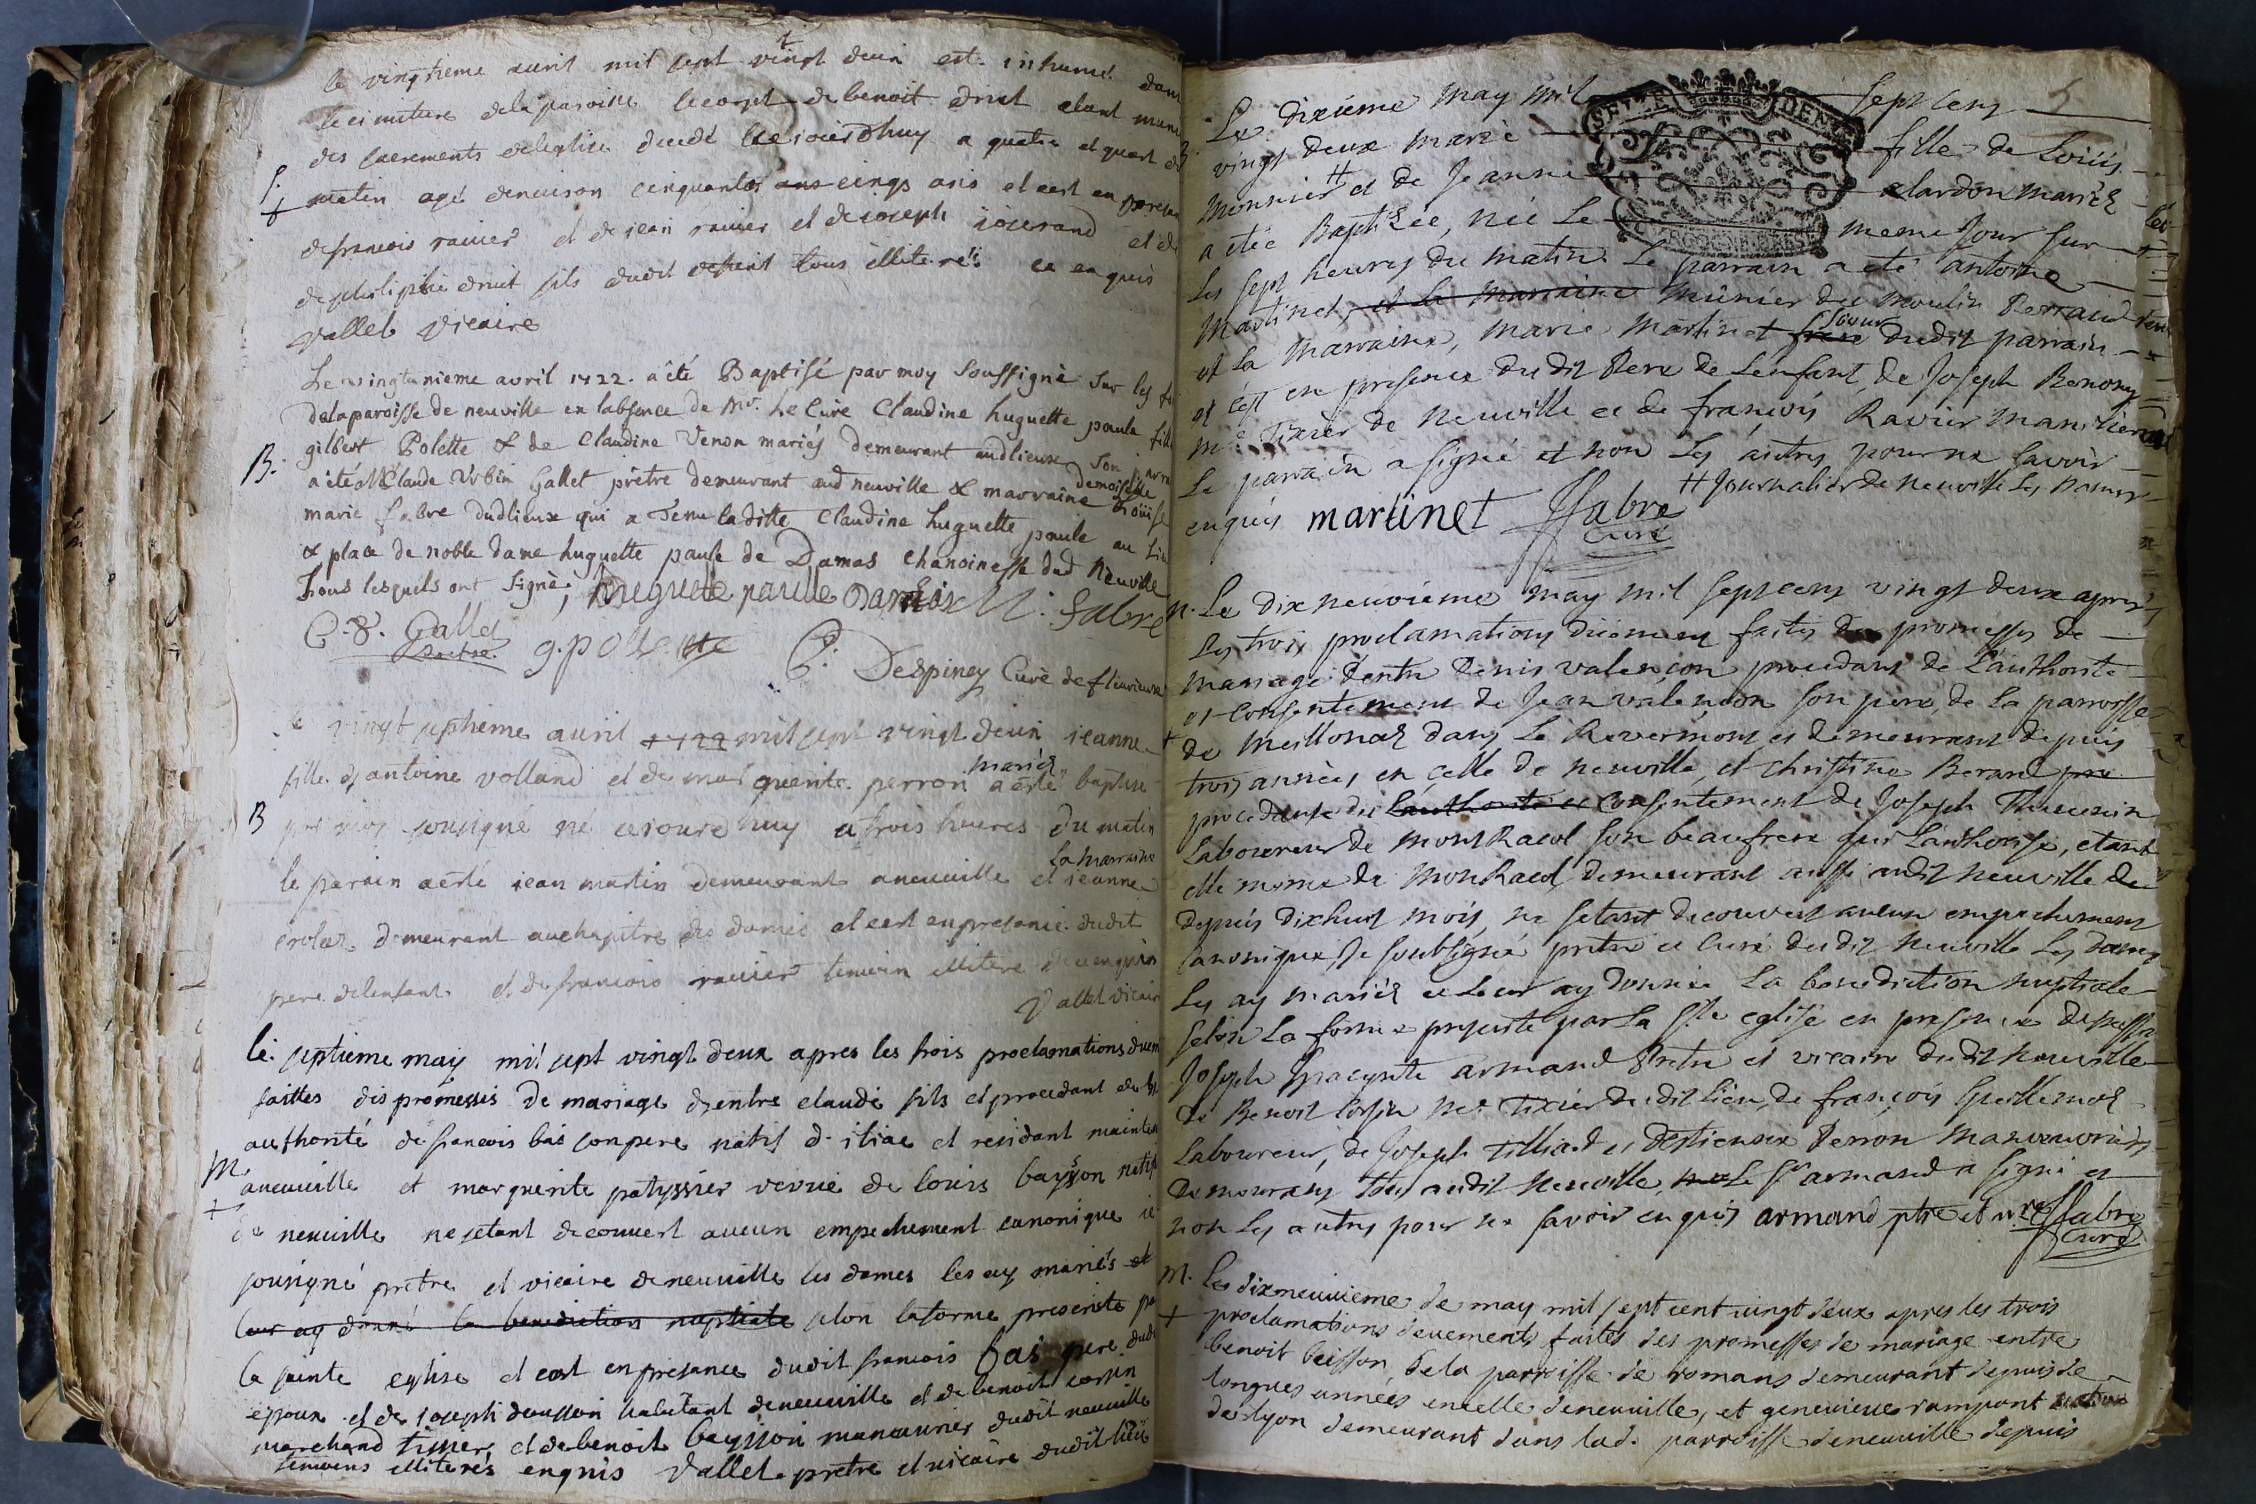 le vingtieme auril mil sept vingt deux est inhumé dans
le cimittere dela paroisse le corps de benoit drut etant muni
des sacrements de leglise decedé ce jourdhuy a quatre et quart du
S. matin agé denuiron cinquantes ans cinqs ans et cest en presen
+ defrancois rauier et de jean rauier et de ioseph iosserand et de
de philiphe drut fils dudit defunt tous illiterés ce enquis
Vallet Vicaire
Le vingtunieme avril 1722. a été Baptisé par moy Soussigné Sur les fo
delaparoisse de neuville en labsence de Mr. Le Curé Claudine huguette paule fille
B. gilbert Polette & de Claudine Venon mariés demeurant audlieux Son parra
a été Mr Claude Urbin Gallet prêtre demeurant aud neuville & marraine demoiselle Loüise
marie fabre dudlieux qui a Tenu laditte Claudine huguette paule au lieu
& place de noble dame huguette paule de Damas Chanoinesse dud Neuville
Tous lesquels ont Signé; huguette paulle Damas M: fabre
C. V. Gallet prêtre. g. polette C. Despiney Curé de fleurieux
le vingt septhieme auril 1722 mil sept vingt deux jeanne
fille d'antoine volland et de marguerite perron mariés a esté baptisé
B par moy sousigné né ce jourdhuy a trois heures du matin
le parain a esté jean martin demeurant a neuuille et la marraine jeanne
demeurant au chapitre des dames et cest en presence dudit
pere de lenfant et de francois rauier temoin illitere de ce enquis
Vallet vicair
le septieme may mil sept vingt deux apres les trois proclamations duem
faittes des promesses de mariage d'entre claude fils et procedant de l
authorité de francois bas son pere natif d et residant mainten
M. aneuuille et marguerite patyssier vevue de louis bayson natif
+ de neuuille ne setant decouvert aucun empechement canonique ie
sousigné prêtre et vicaire de neuuille les dames les ay mariés et
leur ay donné la benediction nuptiale selon la forme prescritte pa
la sainte eglise et cest en presance dudit francois bas pere dudi
epoux et de joseph habitant deneuuille et de benoit corsin
marchand tissier et de benoit beysson manauurier dudit neuuille
temoins illiterés enquis Vallet prêtre et vicaire dudit lieü
5
Le dixiéme may mil sept cens
vingt deux marie fille de Loüis
monnier # et de Jeanne clardon mariés
a eteé Baptizée, neé Le meme Jour sur
Les sept heures du matin. Le parrain a eté antoine
martinet, et la marraine munier du moulin
et La marraine, marie martinet soeur dudit parrain
et c'est en presence du dit Pere de L'enfant, de Joseph Bonony
me Tixier de neuville et de françois Ravier
Le parrain a signé et non Les autres pour ne savoir
enquis martinet Ffabre Curé # Journalier de neuville Les Dames
SEIZE DENI
M. Le dix neuvième may mil sept cens vingt deux après
Les trois proclamations düement faites des promesses de
mariage d'entre Denis valençon procedant de L'authorité
et consentement de Jean valençon son pere, de la parroisse
+ de meillonaz dans Le Revermont et demeurant depuis
trois années en celle de neuville, et christine Berand pro
procedante du L'authorité et consentement de Joseph
Laboureur de montRacol son beaufrere qui L'authorise, etant
elle meme de monRacol, demeurant aussi audit neuville de
depuis dixhuit mois, ne setant decouvert aucun empechement
canonique, Je soubsigné prêtre et curé dudit neuville Les dames
Les ay mariés et Leur ay donnée La benediction nuptiale
selon La forme prescrite par La Ste eglise en presence de
Joseph hyacynte armand Prêtre et vicaire dudit neuville
de Benoit Corsin Me Tixier dudit lieu, de françois Guillemot
Laboureur, de Joseph Tilliard et d'estienne Perron manouvriers
demeurans tous audit neuville, Le Sr armand a signé et
non Les autres pour ne savoir enquis armand ptre et vre Ffabre Curé
M. Le dixneuuieme de may mil sept cent vingt deux apres les trois
+ proclamations deuements faites des promesses de mariage entre
benoit beisson de la parroisse de romans demeurant depuis de
longues années en celle de neuuille, et geneuieue rampont natiue
de lyon demeurant dans lad. parroisse deneuuille depuis